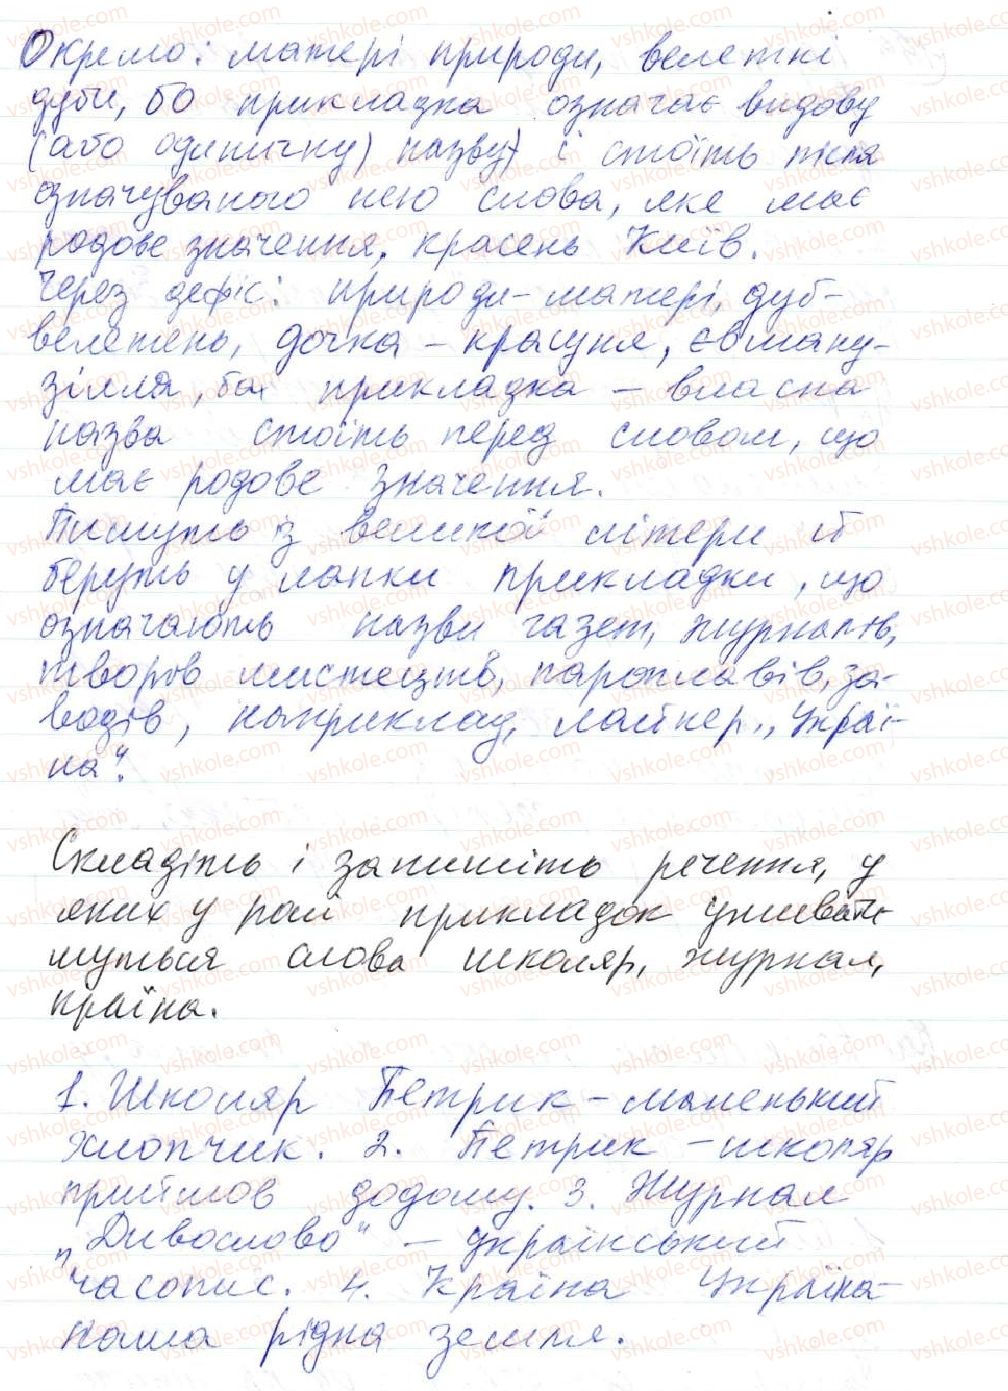 Окремо: матері природи, велетні
дуби, бо прикладка означає видову
(або одиничну) назву) і стоїть після
означуваного нею слова, яке має
родове значення, красень Київ.
Через дефіс: природи-матері, дуб-
велетень, дочка-красуня, євману-
зілля, бо прикладка - власна
назва стоїть перед словом, що
має родове значення.
Пишуть із великої літери й
беруть у лапки прикладки, що
означають назви газет, журналів,
творів мистецтв, пароплавів, за-
водів, наприклад, лайнер „Украї-
на".
Складіть і запишіть речення, у
яких у ролі прикладок уживати-
муться слова школяр, журнал,
країна.
1. Школяр Петрик - маленький
хлопчик. 2. Петрик - школяр
прийшов додому. 3. Журнал
„Дивослово" - український
часопис. 4. Країна Україна -
наша рідна земля.